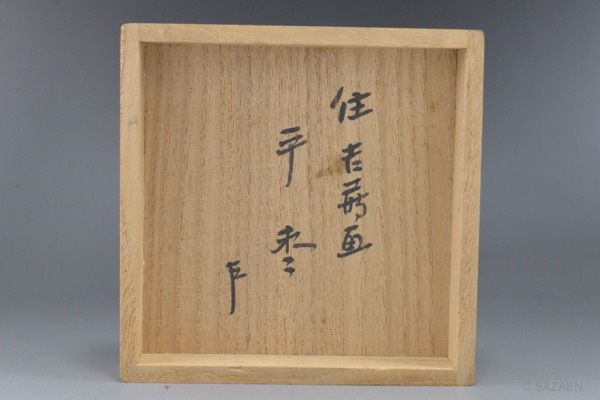 住吉蒔画
平棗
© SAZAEN